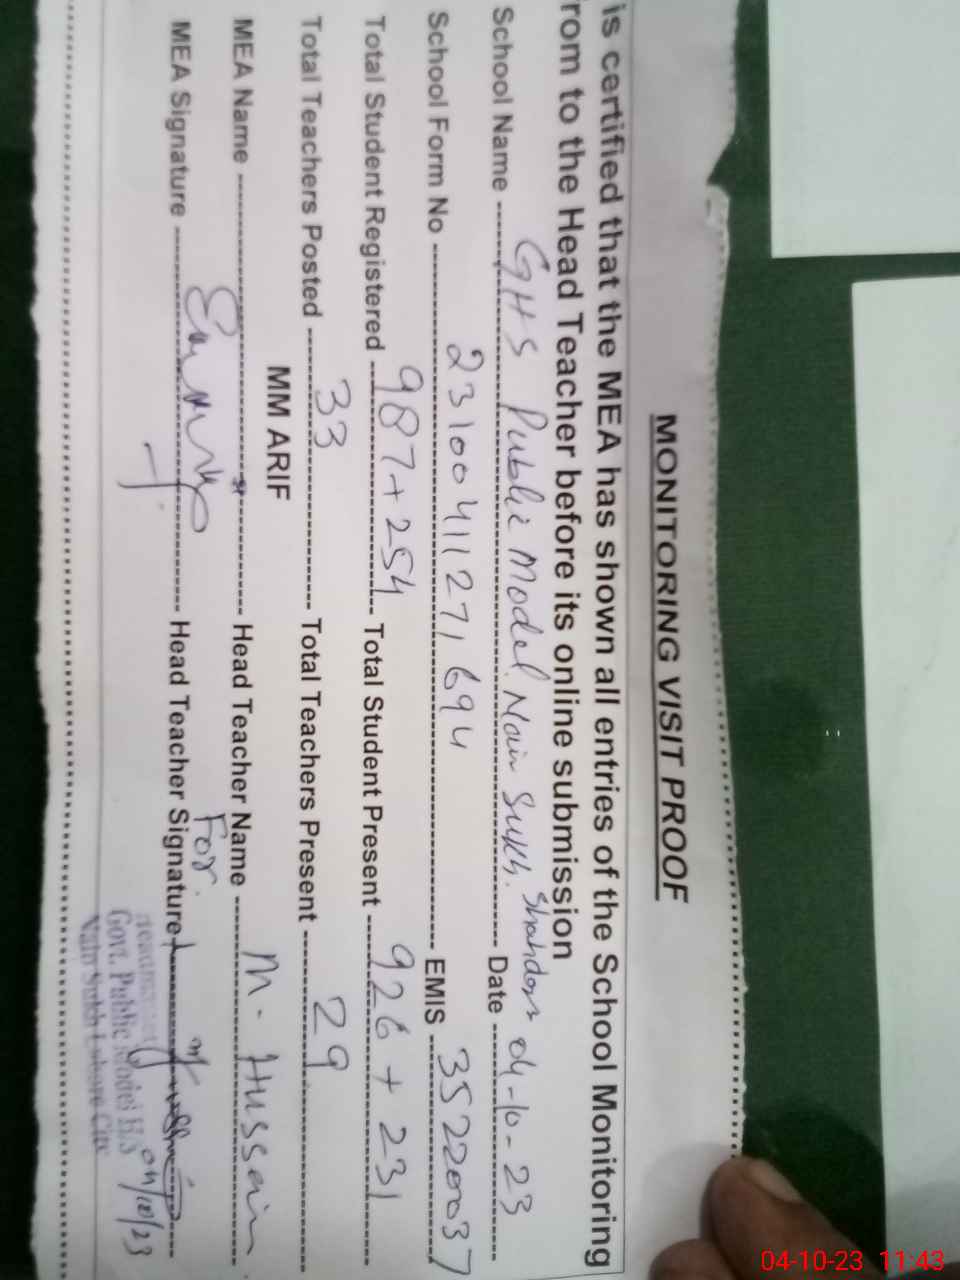 MONITORING VISIT PROOF
is certified that the MEA has shown all entries of the School Monitoring
rom to the Head Teacher before its online submission
School Name GHS Public Model Main Sukh. Shahdara Date 04-10-23
School Form No 231004111271694 EMIS 35220037
Total Student Registered 987+254 Total Student Present 926 + 231
Total Teachers Posted 33 Total Teachers Present 29
MM ARIF
MEA Name Head Teacher Name M. Hussain
For.
MEA Signature Head Teacher Signature
Govt. Public Model H.S
04/10/23
04-10-23 11:43